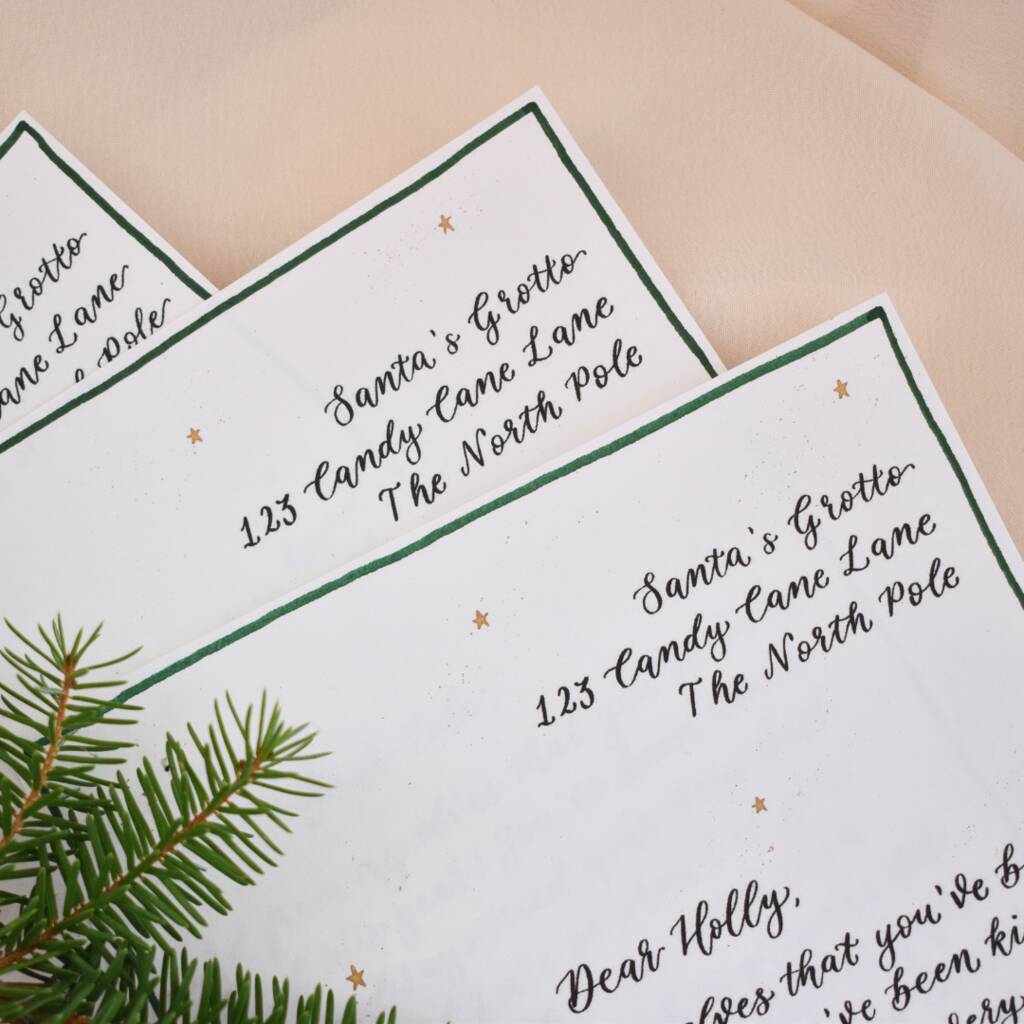 Grotto
Lane
Pole
Santa's Grotto
123 Candy Cane Lane
The North Pole
Santa's Grotto
123 Candy Cane Lane
The North Pole
Dear Holly,
that you've
been